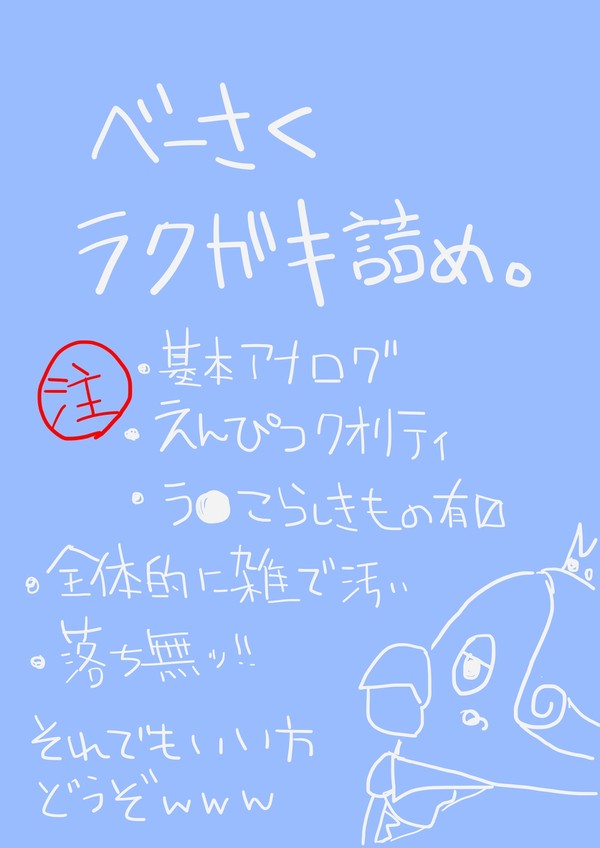 べーさく
ラクガキ詰め。
注
・基本アナログ
・えんぴつクオリティ
・う●こらしきもの有〼
・全体的に雑で汚い
・落ち無ッ!!
それでもいい方
どうぞwww